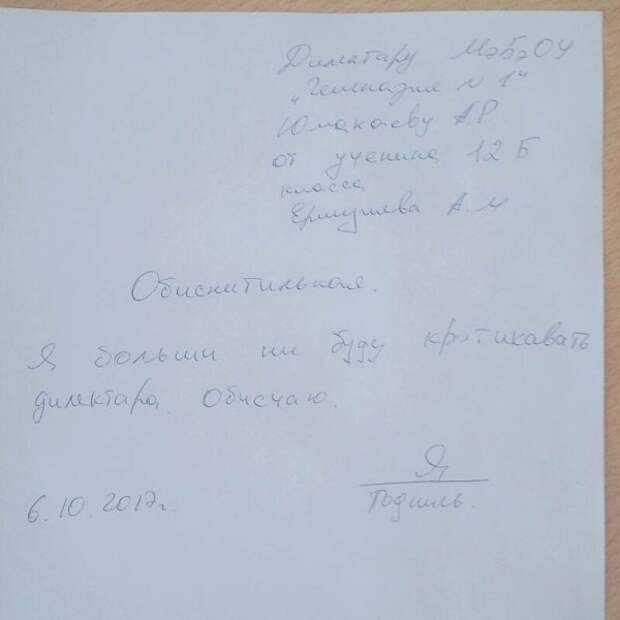 Димектару МэБэОУ
"Геменазия N 1"
Юмакаеву А.Р
от ученика 12 Б
класса
Ермушева А.М
Обиснитильная.
Я больши ни буду кротикавать
дилектара. Обисчаю.
Я
6.10.2017г.
Подпиль.